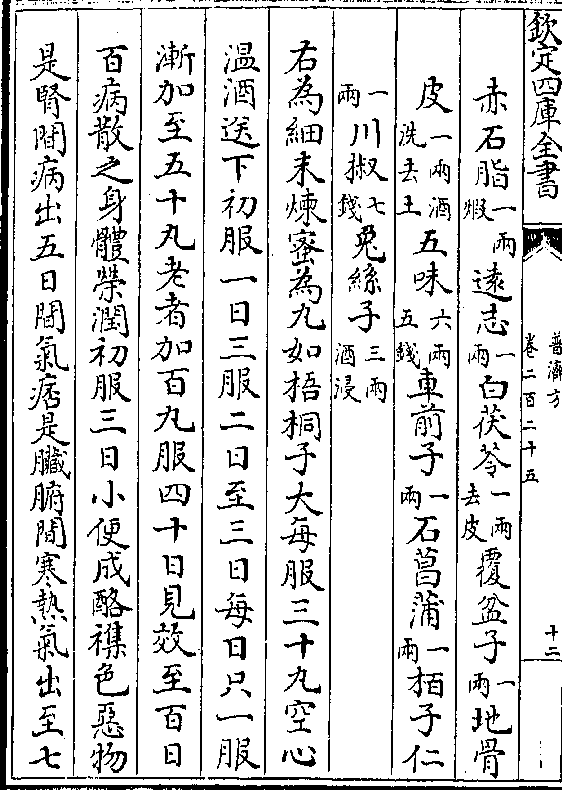 欽定四庫全書
普濟方
卷二百二十五
十二
赤石脂一兩煆遠志一兩白茯苓一兩去皮覆盆子一兩地骨
皮一兩酒洗去土五味六兩五錢車前子一兩石菖蒲一兩栢子仁
一兩川椒七錢兎絲子三兩酒浸
右為細末煉蜜為丸如梧桐子大每服三十丸空心
温酒送下初服一日三服二日至三日每日只一服
漸加至五十丸老者加百丸服四十日見效至百日
百病散之身體榮潤初服三日小便成酪襍色惡物
是腎間病出五日間氣痞是臟腑間寒熱氣出至七